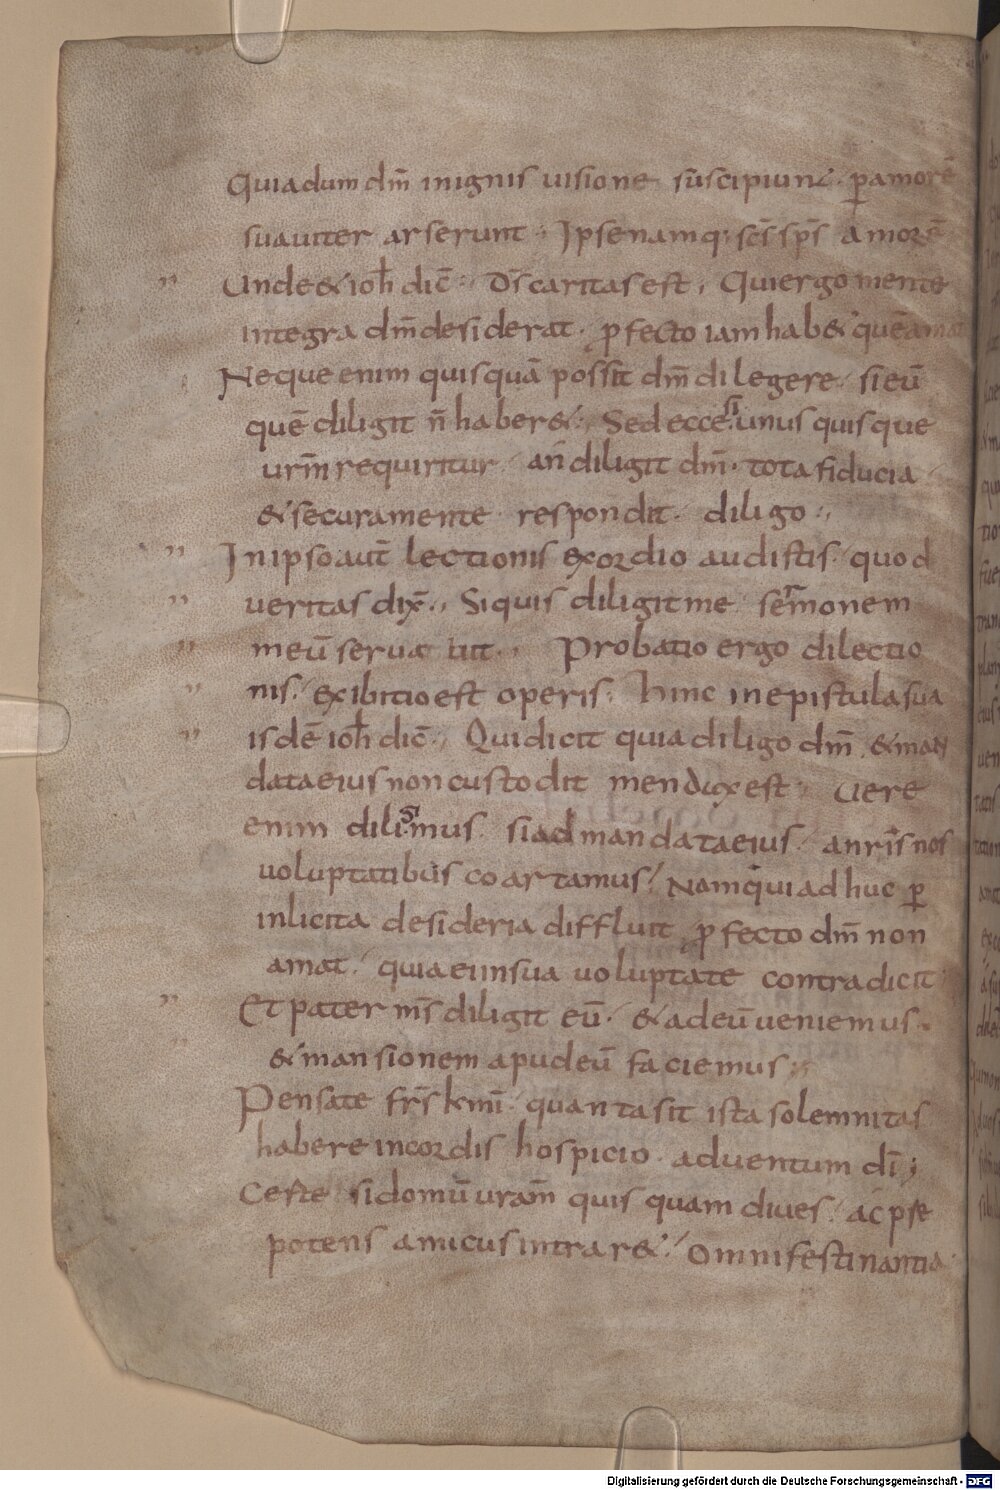 Quia dum dm̄ in ignis uisione sūscipiunt. p̲ amorē
suauiter arserunt. Ipse namq; scs̄ sps̄ amorē
Unde & ioh̄ dic̄. Ds̄ caritas est. Qui ergo mente
integra dm̄ desiderat. profecto iam hab& quē ama
Neque enim quisquā possit dm̄ dilegere. si eū
quē diligit n̄ haber&. Sed ecce si unusquisque
urm̄ requiritur. an diligit dm̄. tota fiducia
& secura mente respondit. diligo.
In ipso aut̄ lectionis exordio audistis. quod
ueritas dix̄. Si quis diligit me sermonem
meū seruat Probatio ergo dilectio
nis. exibitio est operis. Hinc in epistula sua
isdē ioh̄ dic̄. Qui dicit quia diligo dm̄. & man
data eius non custodit mendax est. Uere
enim diligimus si ad mandata eius. a nr̄is nos
uoluptatibus coartamus. Nam qui adhuc p̲
inlicita desideria diffluit profecto dm̄ non
amat. quia ei in sua uoluptate contradicit
Et pater ms̄ diligit eū. & ad eū ueniemus.
& mansionem apud eū faciemus.
Pensate frs̄ kmi. quanta sit ista solemnitas
habere in cordis hospicio. aduentum dī;
Certe si domū uram̄ quisquam diues. ac pre
potens amicus intrar&. omni festinantia.
Digitalisierung gefördert durch die Deutsche Forschungsgemeinschaft - DFG